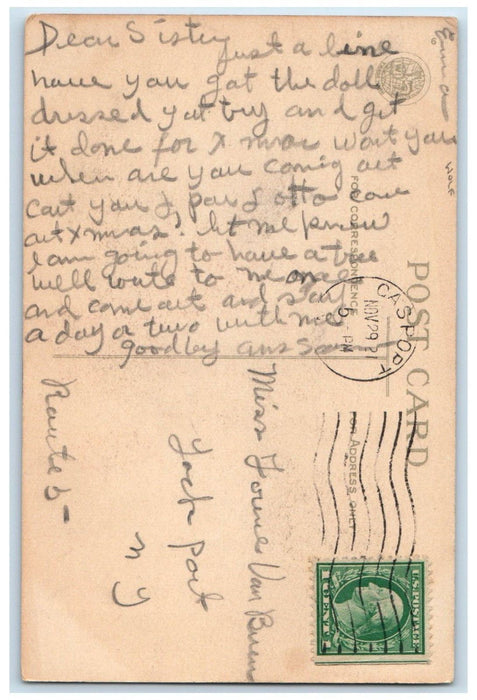 Dear Sister just a line
have you got the doll
dressed yet try and get
it done for Xmas wont you
when are you coming out
cant you & pa & otto come
out Xmas? let me know
I am going to have a tree
well write to me
and come out and stay
a day or two with me
goodby ans soon
Emma
POST CARD
FOR CORRESPONDENCE
FOR ADDRESS ONLY
GASPORT
NOV 29
5 PM
Miss Van Buren
Lock Port
N Y
Route 5
U.S. POSTAGE
1 CENT 1